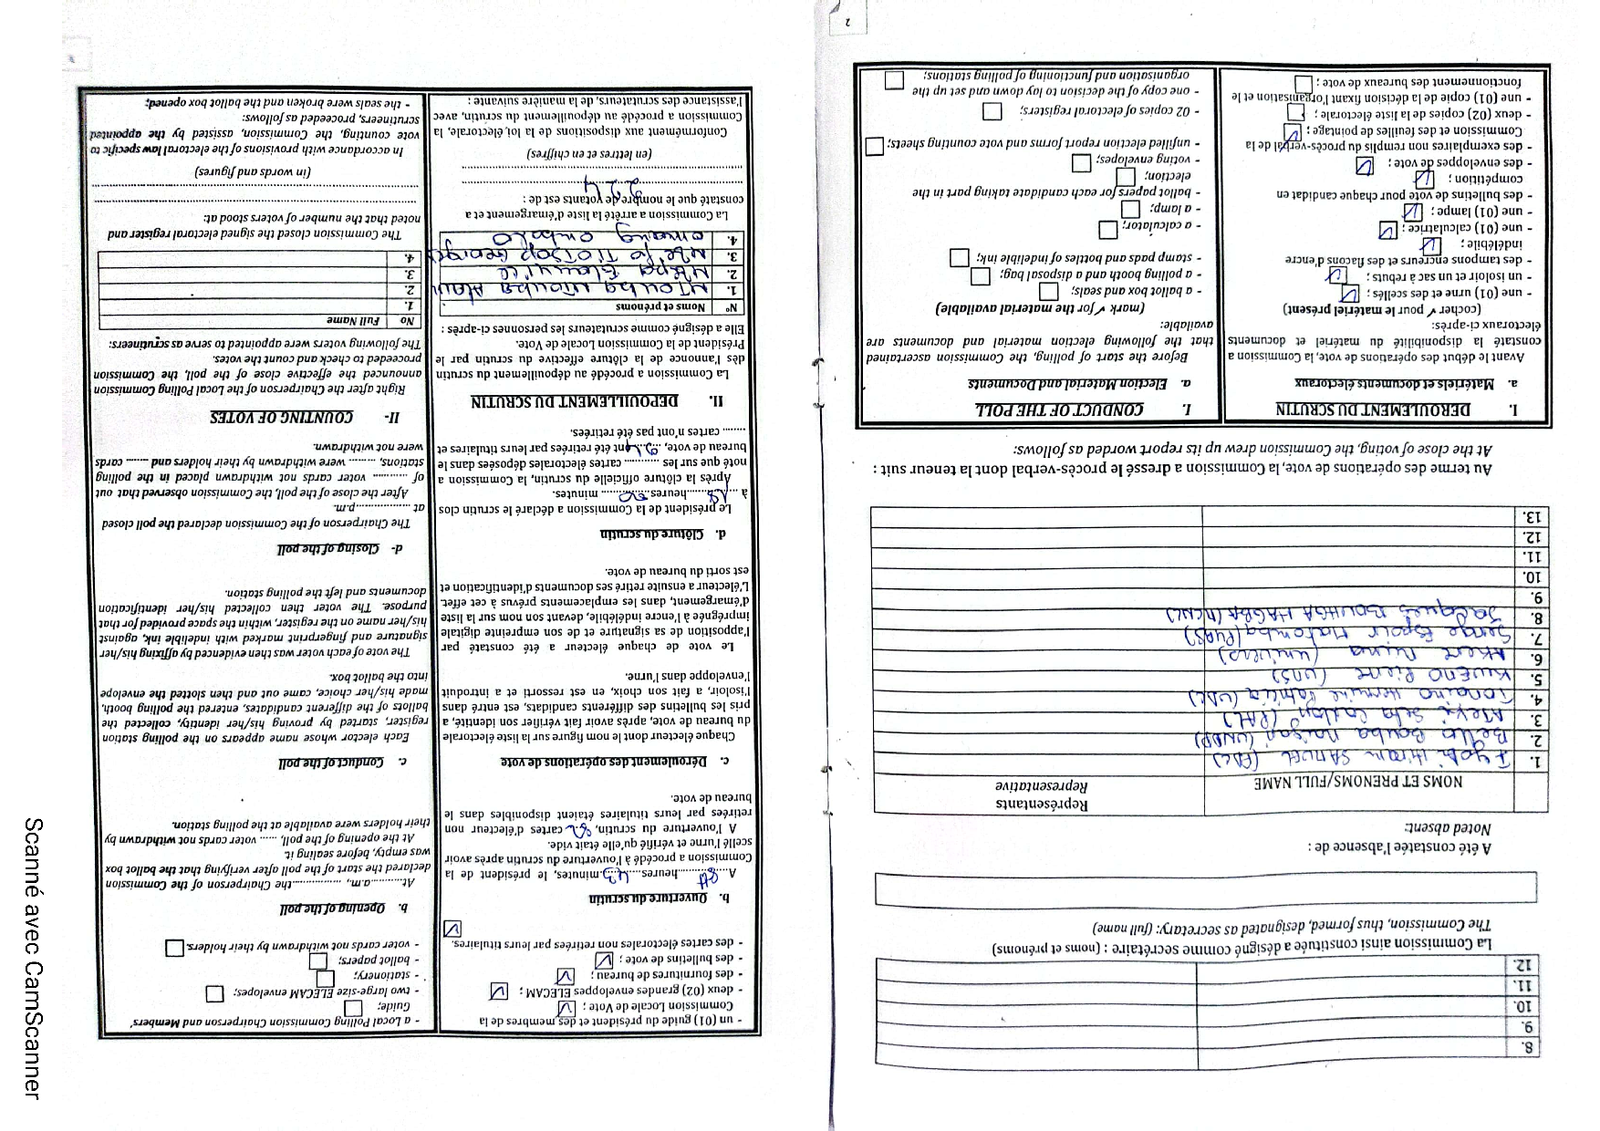 8.
9.
10.
11.
12.
La Commission ainsi constituée a désigné comme secrétaire : (noms et prénoms)
The Commission, thus formed, designated as secretary: (full name)
A été constatée l'absence de :
Noted absent:
NOMS ET PRENOMS/FULL NAME
Représentants
Representative
1. Hiram SAMUEL
2. Bello Bouba (UNDP)
3. Ateki Seta Caxton (PAL)
4. Tomaino Hermine Patricia (UDC)
5. KWEMO Pierre (UMS)
6. Akere Muna (univers)
7. Serge Espoir Matomba (PURS)
8. Jacques BOUHGA HAGBE (MCNC)
9.
10.
11.
12.
13.
Au terme des opérations de vote, la Commission a dressé le procès-verbal dont la teneur suit :
At the close of voting, the Commission drew up its report worded as follows:
I. DEROULEMENT DU SCRUTIN
a. Matériels et documents électoraux
Avant le début des opérations de vote, la Commission a
constaté la disponibilité du matériel et documents
électoraux ci-après:
(cocher ✓ pour le matériel présent)
- une (01) urne et des scellés ;
- un isoloir et un sac à rebuts ;
- des tampons encreurs et des flacons d'encre
indélébile ;
- une (01) calculatrice ;
- une (01) lampe ;
- des bulletins de vote pour chaque candidat en
compétition ;
- des enveloppes de vote ;
- des exemplaires non remplis du procès-verbal de la
Commission et des feuilles de pointage ;
- deux (02) copies de la liste électorale ;
- une (01) copie de la décision fixant l'organisation et le
fonctionnement des bureaux de vote ;
I. CONDUCT OF THE POLL
a. Election Material and Documents
Before the start of polling, the Commission ascertained
that the following election material and documents are
available:
(mark ✓ for the material available)
- a ballot box and seals;
- a polling booth and a disposal bag;
- stamp pads and bottles of indelible ink;
- a calculator;
- a lamp;
- ballot papers for each candidate taking part in the
election;
- voting envelopes;
- unfilled election report forms and vote counting sheets;
- 02 copies of electoral registers;
- one copy of the decision to lay down and set up the
organisation and functioning of polling stations;
2
- un (01) guide du président et des membres de la
Commission Locale de Vote ;
- deux (02) grandes enveloppes ELECAM ;
- des fournitures de bureau ;
- des bulletins de vote ;
- des cartes électorales non retirées par leurs titulaires.
b. Ouverture du scrutin
A ...8H... heures...43...minutes, le président de la
Commission a procédé à l'ouverture du scrutin après avoir
scellé l'urne et vérifié qu'elle était vide.
A l'ouverture du scrutin, 82 cartes d'électeur non
retirées par leurs titulaires étaient disponibles dans le
bureau de vote.
c. Déroulement des opérations de vote
Chaque électeur dont le nom figure sur la liste électorale
du bureau de vote, après avoir fait vérifier son identité, a
pris les bulletins des différents candidats, est entré dans
l'isoloir, a fait son choix, en est ressorti et a introduit
l'enveloppe dans l'urne.
Le vote de chaque électeur a été constaté par
l'apposition de sa signature et de son empreinte digitale
imprégnée à l'encre indélébile, devant son nom sur la liste
d'émargement, dans les emplacements prévus à cet effet.
L'électeur a ensuite retiré ses documents d'identification et
est sorti du bureau de vote.
d. Clôture du scrutin
Le président de la Commission a déclaré le scrutin clos
à ...18...heures...00... minutes.
Après la clôture officielle du scrutin, la Commission a
noté que sur les .......... cartes électorales déposées dans le
bureau de vote, ......ont été retirées par leurs titulaires et
...... cartes n'ont pas été retirées.
II. DEPOUILLEMENT DU SCRUTIN
La Commission a procédé au dépouillement du scrutin
dès l'annonce de la clôture effective du scrutin par le
Président de la Commission Locale de Vote.
Elle a désigné comme scrutateurs les personnes ci-après :
N° Noms et prénoms
1. Ntouba Ntouba Alain
2. Nkepa Blanville
3. Mbefo Tiotsop Georges
4. omang ombolo
La Commission a arrêté la liste d'émargement et a
constaté que le nombre de votants est de :
224
(en lettres et en chiffres)
Conformément aux dispositions de la loi électorale, la
Commission a procédé au dépouillement du scrutin, avec
l'assistance des scrutateurs, de la manière suivante :
- a Local Polling Commission Chairperson and Members'
Guide;
- two large-size ELECAM envelopes;
- stationery;
- ballot papers;
- voter cards not withdrawn by their holders.
b. Opening of the poll
At..........a.m, ..............the Chairperson of the Commission
declared the start of the poll after verifying that the ballot box
was empty, before sealing it.
At the opening of the poll, ...... voter cards not withdrawn by
their holders were available at the polling station.
c. Conduct of the poll
Each elector whose name appears on the polling station
register, started by proving his/her identity, collected the
ballots of the different candidates, entered the polling booth,
made his/her choice, came out and then slotted the envelope
into the ballot box.
The vote of each voter was then evidenced by affixing his/her
signature and fingerprint marked with indelible ink, against
his/her name on the register, within the space provided for that
purpose. The voter then collected his/her identification
documents and left the polling station.
d- Closing of the poll
The Chairperson of the Commission declared the poll closed
at ..................p.m.
After the close of the poll, the Commission observed that out
of .......... voter cards not withdrawn placed in the polling
stations, ...... were withdrawn by their holders and ...... cards
were not withdrawn.
II- COUNTING OF VOTES
Right after the Chairperson of the Local Polling Commission
announced the effective close of the poll, the Commission
proceeded to check and count the votes.
The following voters were appointed to serve as scrutineers:
No Full Name
1.
2.
3.
4.
The Commission closed the signed electoral register and
noted that the number of voters stood at:
(in words and figures)
In accordance with provisions of the electoral law specific to
vote counting, the Commission, assisted by the appointed
scrutineers, proceeded as follows:
- the seals were broken and the ballot box opened;
Scanné avec CamScanner